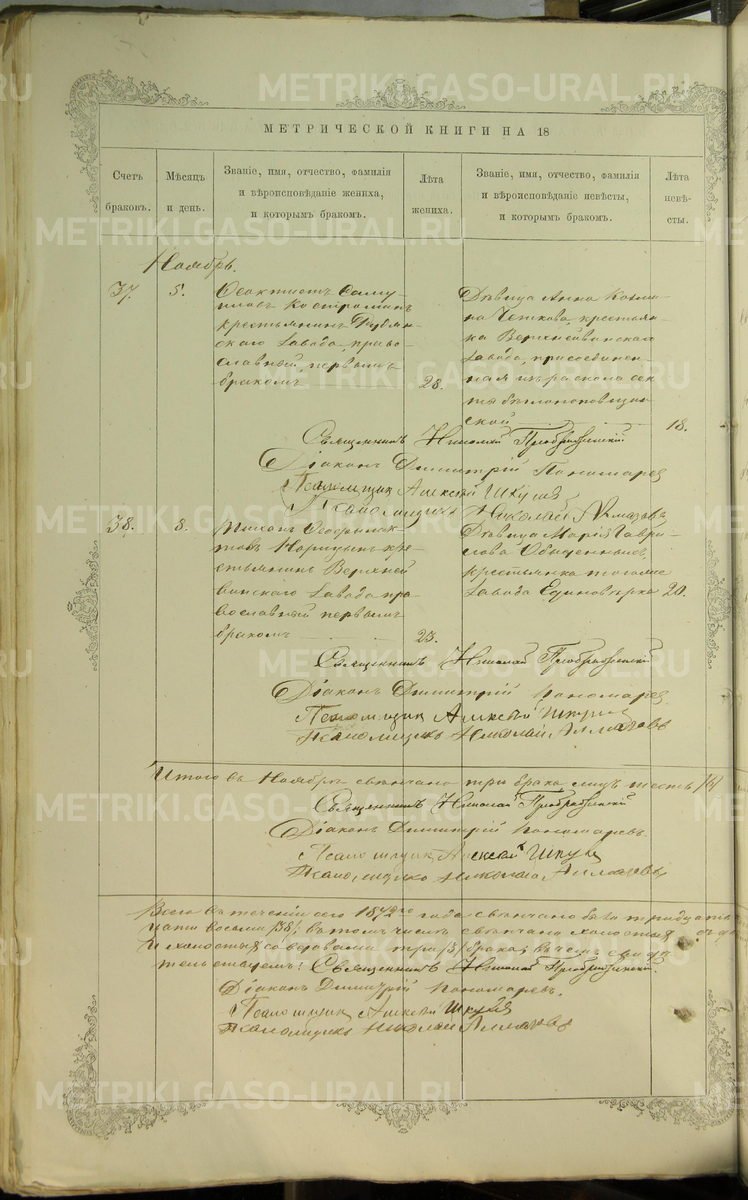 МЕТРИЧЕСКОЙ КНИГИ НА 18
Счетъ браковъ.
Мѣсяцъ и день.
Званіе, имя, отчество, фамилія
и вѣроисповѣданіе жениха,
и которымъ бракомъ.
Лѣта жениха.
Званіе, имя, отчество, фамилія
и вѣроисповѣданіе невѣсты,
и которымъ бракомъ.
Лѣта невѣсты.
Ноябрь.
37.
5.
Ѳеоктистъ Саму-
иловъ Костромин
крестьянинъ
скаго завода, право-
славный, первымъ
бракомъ
28.
Дѣвица Анна Козми-
на крестьян-
ка Верхнейвинскаго
завода, присоединен-
ная изъ раскола сек-
ты бѣлопоповщин-
ской
18.
Священникъ Николай Преображенскій
Діаконъ Димитрій Пономарев
Псаломщик Алексѣй
Псаломщикъ Николай Алмазовъ
38.
8.
кре-
стьянинъ Верхней-
винскаго завода пра-
вославный первымъ
бракомъ
23.
Дѣвица Марія Гаври-
лова
крестьянка тогоже
завода Единовѣрка
20.
Священникъ Николай Преображенскій
Діаконъ Димитрій Пономарев
Псаломщик Алексѣй
Псаломщикъ Николай Алмазовъ
Итого въ Ноябрѣ свѣнчано три брака лицъ шесть /6/
Священникъ Николай Преображенскій
Діаконъ Димитрій Пономаревъ.
Псаломщик Алексѣй
Псаломщикъ Николай Алмазовъ
Всего въ теченіи сего 1872го года свѣнчано было тридцать
восемь /38/. въ томъ числѣ свѣнчано холостыхъ
и холостыхъ со вдовами три /3/ брака; въ чемъ свидѣ-
тельствуемъ: Священникъ Николай Преображенскій.
Діаконъ Димитрій Пономаревъ.
Псаломщик Алексѣй
Псаломщикъ Николай Алмазовъ
METRIKI.GASO-URAL.RU